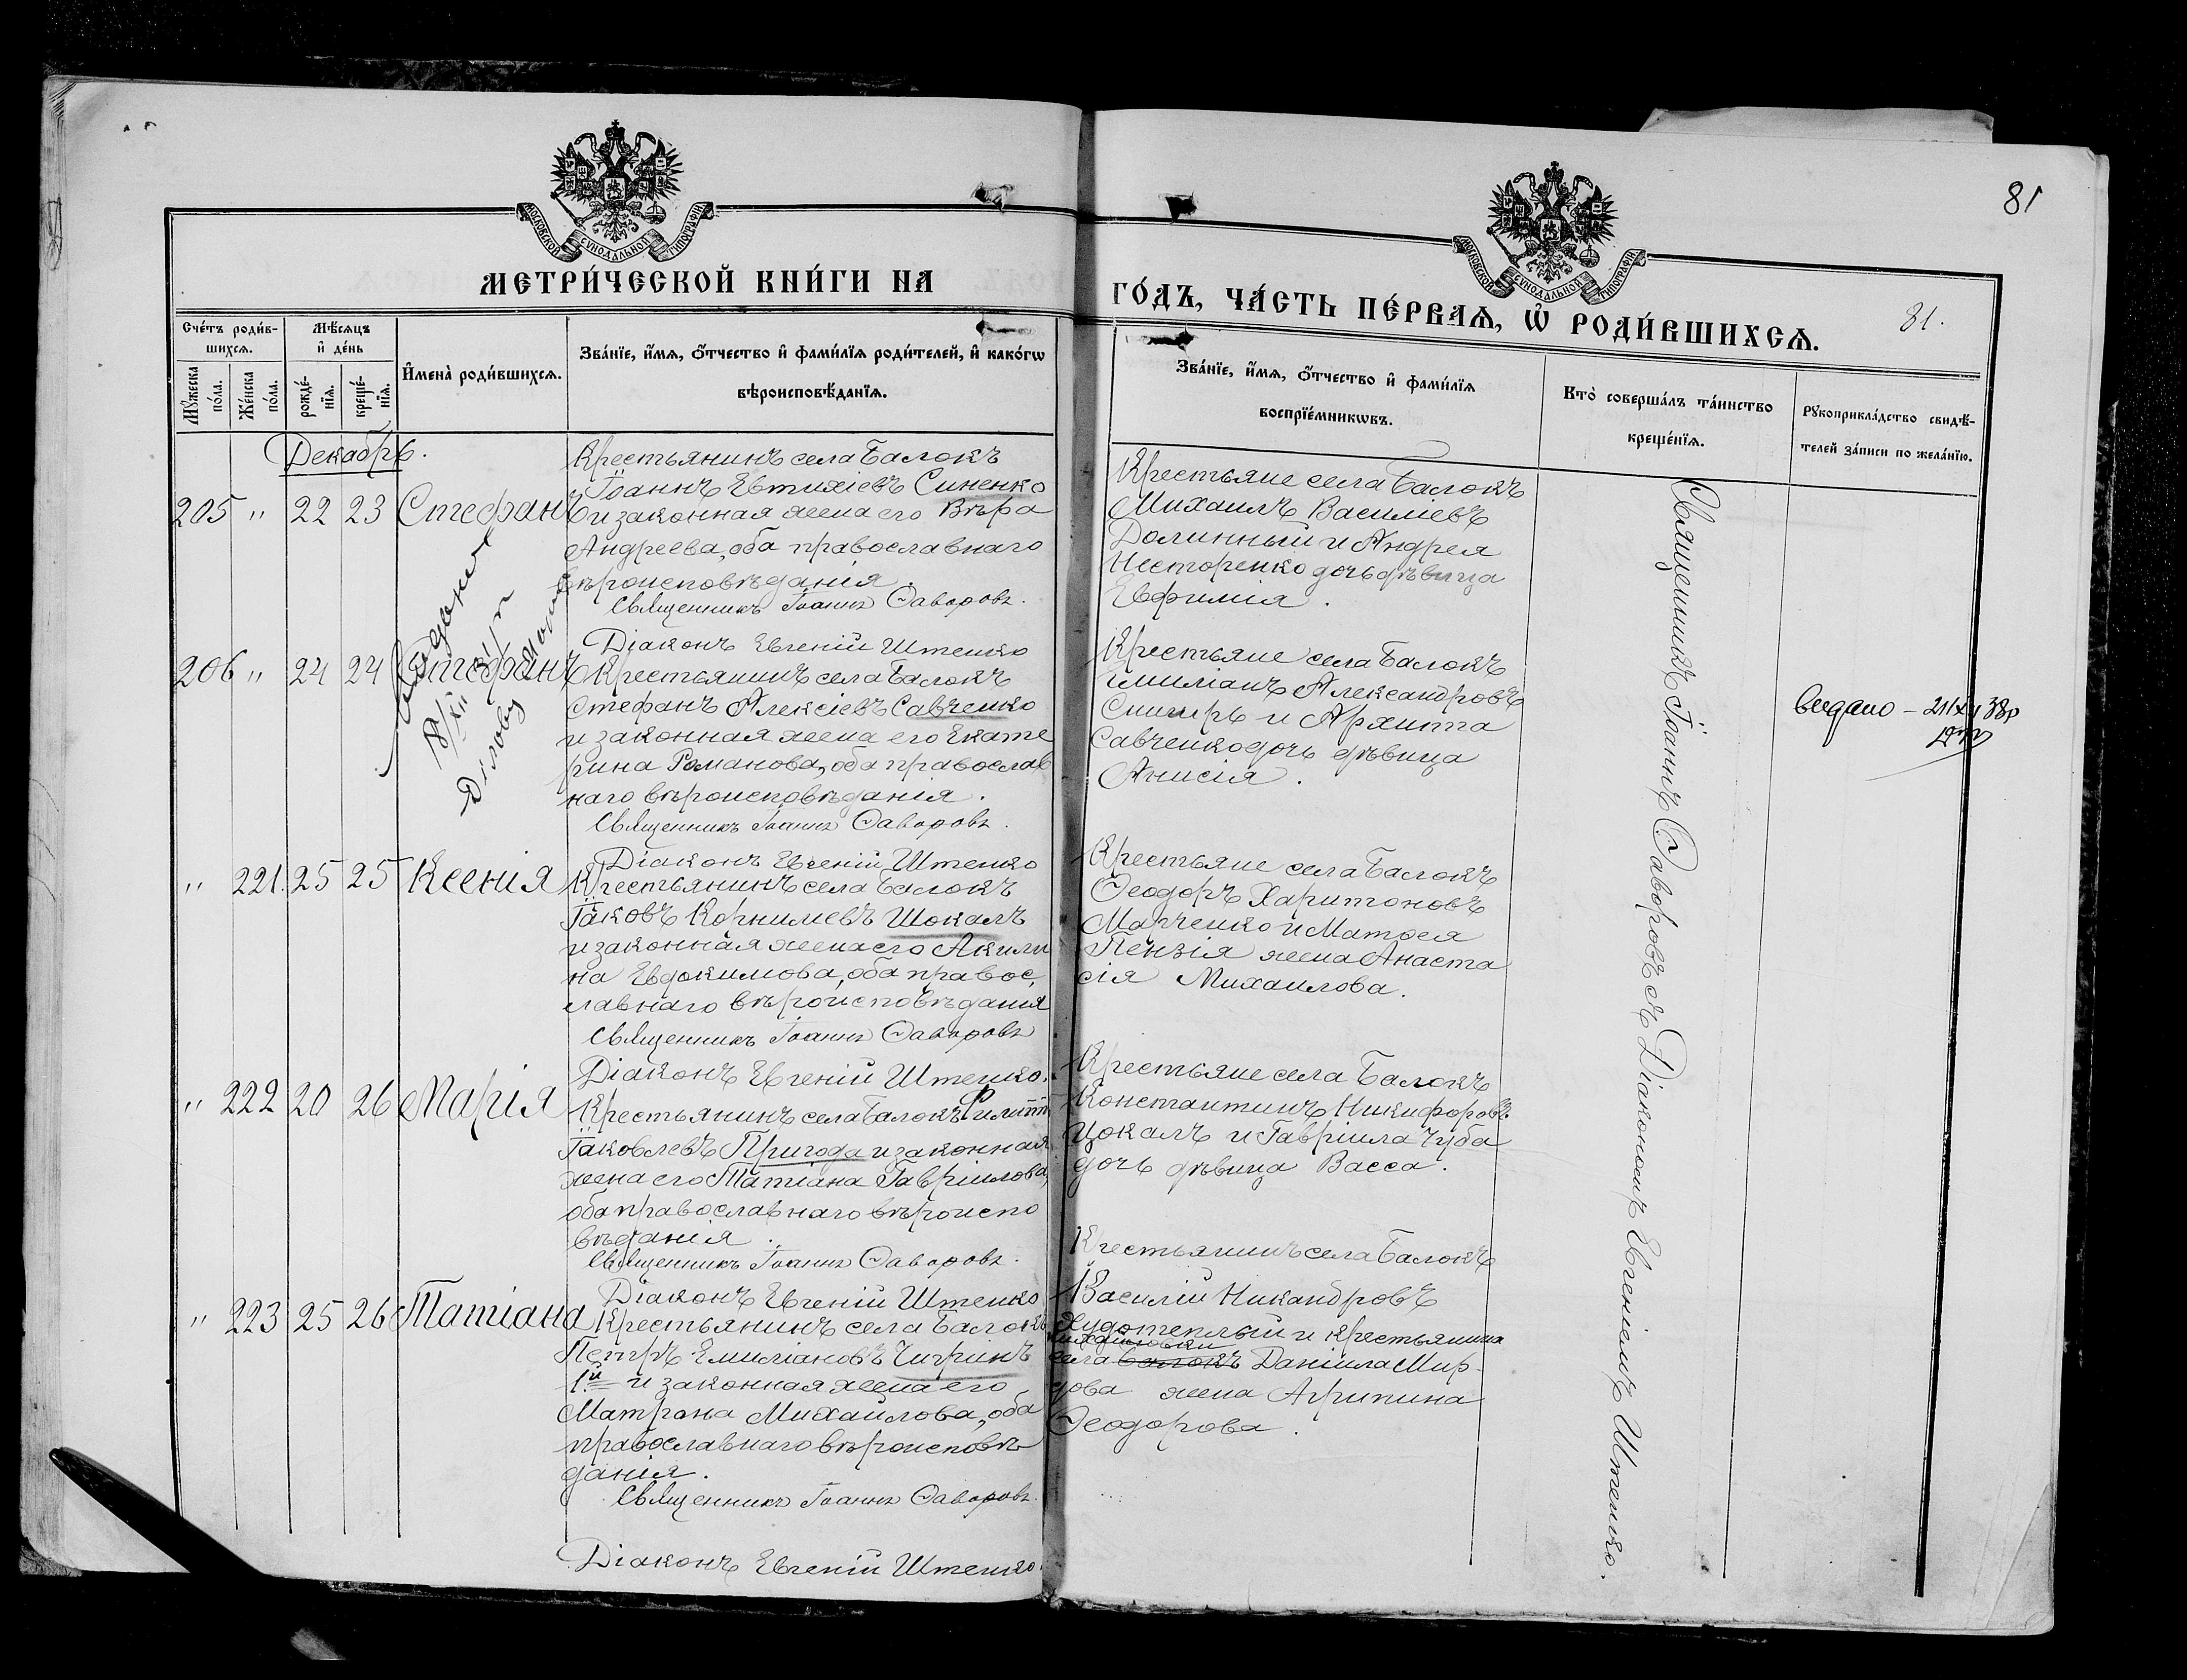 81
МОСКОВСКОЙ СѴНОДАЛЬНОЙ ТИПОГРАФІИ
МОСКОВСКОЙ СѴНОДАЛЬНОЙ ТИПОГРАФІИ
МЕТРИ́ЧЕСКОЙ КНИ́ГИ НА
ГО́ДЪ, ЧА́СТЬ ПЕ́РВАѦ, Ѡ҆ РОДИ́ВШИХСѦ.
81.
Сче́тъ роди́в-
шихсѧ.
Мꙋ́жеска по́ла.
Же́нска по́ла.
Мѣ́сѧцъ и҆ де́нь
рожде́-нїѧ.
креще́-нїѧ.
И҆мена̀ роди́вшихсѧ.
Зва́нїе, и҆́мѧ, ѻ҆́тчество и҆ фами́лїѧ роди́телей, и҆ како́гѡ
вѣроисповѣ́данїѧ.
Зва́нїе, и҆́мѧ, ѻ҆́тчество и҆ фами́лїѧ
воспрїе́мникѡвъ.
Кто̀ соверша́лъ та́инство
креще́нїѧ.
Рꙋкоприкла́дство свидѣ́-
телей за́писи по жела́нїю.
Декабрь.
205 " 22 23 Стефанъ
Крестьянинъ села Балокъ
Іоаннъ Евтихіевъ Синенко
и законная жена его Вѣра
Андреева, оба православнаго
вѣроисповѣданія.
Священникъ Іоаннъ Ѳаворовъ.
Діаконъ Евгеній Штепко
Крестьяне села Балокъ
Михаилъ Василіевъ
Долинный и Андрея
Несторенко дочь дѣвица
Евфимія.
206 " 24 24 Стефанъ
Крестьянинъ села Балокъ
Стефанъ Алексіевъ Савченко
и законная жена его Екате
рина Романова, оба православ
наго вѣроисповѣданія.
Священникъ Іоаннъ Ѳаворовъ.
Діаконъ Евгеній Штепко
Крестьяне села Балокъ
Емиліанъ Александровъ
и Архипа
Савченко дочь дѣвица
Анисія.
видано – 21/XII 38р
" 221. 25 25 Ксенія
Крестьянинъ села Балокъ
Іаковъ Корниліевъ Шокалъ
и законная жена его Акили
на Евдокимова, оба правос,
лавнаго вѣроисповѣданія
Священникъ Іоаннъ Ѳаворовъ
Діаконъ Евгеній Штепко.
Крестьяне села Балокъ
Ѳеодоръ Харитоновъ
Марченко и Матѳея
Пензія жена Анаста
сія Михаилова.
" 222 20 26 Марія
Крестьянинъ села Балокъ Филиппъ
Іаковлевъ Пригода и законная
жена его Татіана Гавріилова,
оба православнаго вѣроиспо
вѣданія.
Священникъ Іоаннъ Ѳаворовъ.
Діаконъ Евгеній Штепко
Крестьяне села Балокъ
Константинъ Никифоровъ
Цокалъ и Гавріила Чуба
дочь дѣвица Васса.
" 223 25 26 Татіана
Крестьянинъ села Балокъ
Петръ Емиліановъ Чигринъ
1й и законная жена его
Матрона Михайлова, оба
православнаго вѣроисповѣ
данія.
Священникъ Іоаннъ Ѳаворовъ.
Діаконъ Евгеній Штепко.
Крестьянинъ села Балокъ
Василій Никандровъ
Худотеплый и крестьянина
села Балокъ Даніила Мир
дова жена Агрипина
Ѳеодорова.
Священникъ Іоаннъ Ѳаворовъ съ Діакономъ Евгеніемъ Штепко.